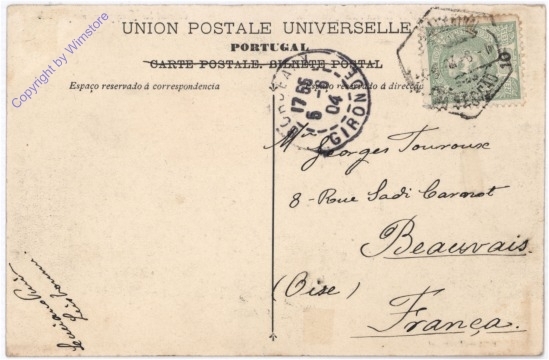 Copyright by Wimstore
UNION POSTALE UNIVERSELLE
PORTUGAL
CARTE POSTALE. BILHETE POSTAL
Espaço reservado á correspondencia
Espaço reservado á direcção
BORDEAUX
17 55
6 - 6
04
GIRONDE
Mr Georges Touroux
8 - Rue Sadi Carnot
Beauvais
(Oise)
França.
Lisbonne